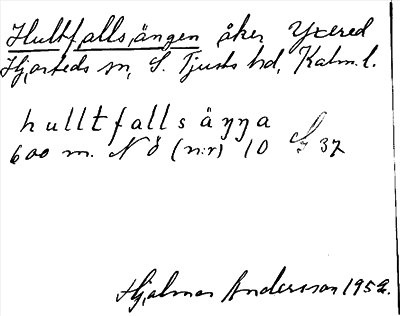 Hultfallsängen åker Yxered
Hjorteds sn, S. Tjusts hd, Kalm. l.
hulltfallsäŋŋa
600 m. NÖ (n:r) 10 37
Hjalmar Andersson 1952.